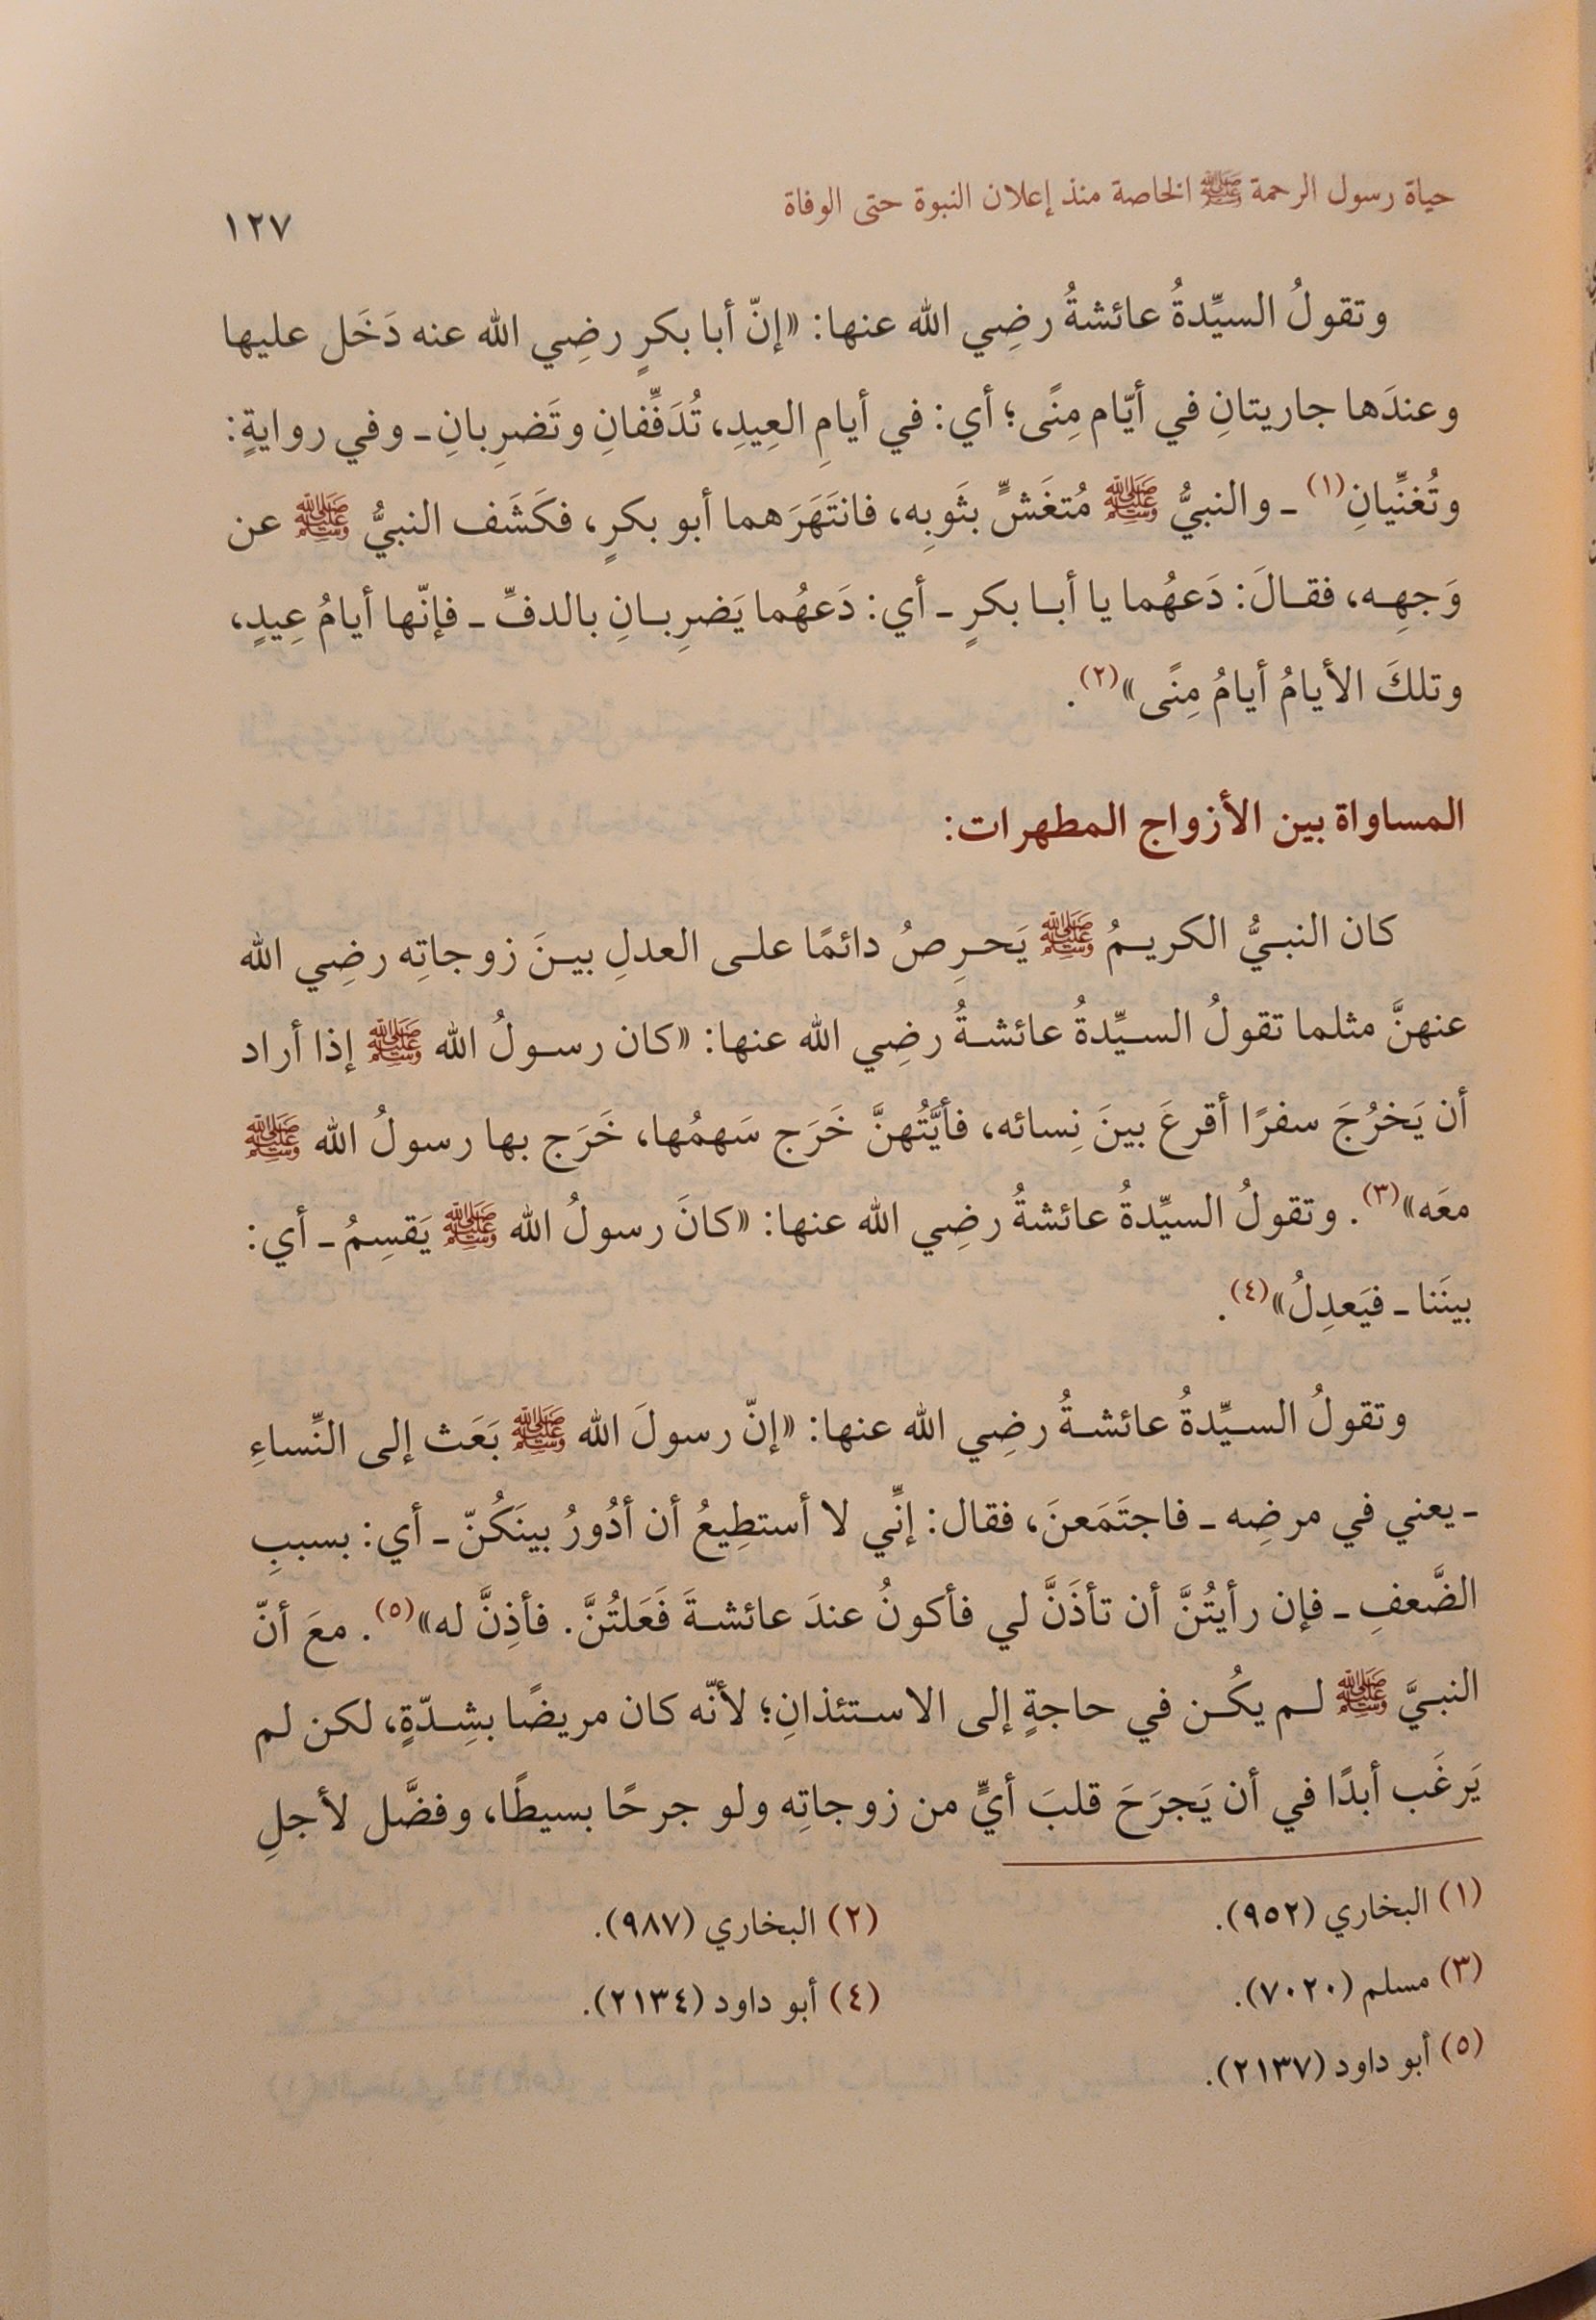 حياة رسول الرحمة ﷺ الخاصة منذ إعلان النبوة حتى الوفاة
١٢٧
وتقولُ السيِّدةُ عائشةُ رضِي الله عنها: «إنّ أبا بكرٍ رضِي الله عنه دَخَل عليها
وعندَها جاريتانِ في أيّام مِنًى؛ أي: في أيامِ العِيدِ، تُدَفِّفانِ وتَضرِبانِ ـ وفي روايةٍ:
وتُغنِّيانِ(١) ـ والنبيُّ ﷺ مُتغَشٍّ بثَوبِه، فانتَهَرَهما أبو بكرٍ، فكَشَف النبيُّ ﷺ عن
وَجهِـه، فقـالَ: دَعهُما يا أبـا بكرٍ ـ أي: دَعهُما يَضرِبـانِ بالدفِّ ـ فإنّها أيامُ عِيدٍ،
وتلكَ الأيامُ أيامُ مِنًى»(٢).
المساواة بين الأزواج المطهرات:
كان النبـيُّ الكريـمُ ﷺ يَحـرِصُ دائمًا علـى العدلِ بيـنَ زوجاتِه رضِي الله
عنهنَّ مثلما تقولُ السـيِّدةُ عائشـةُ رضِي الله عنها: «كان رسـولُ الله ﷺ إذا أراد
أن يَخرُجَ سفرًا أقرعَ بينَ نِسائه، فأيَّتُهنَّ خَرَج سَهمُها، خَرَج بها رسولُ الله ﷺ
معَه»(٣). وتقولُ السيِّدةُ عائشةُ رضِي الله عنها: «كانَ رسولُ الله ﷺ يَقسِمُ ـ أي:
بينَنا ـ فيَعدِلُ»(٤).
وتقولُ السـيِّدةُ عائشـةُ رضِي الله عنها: «إنّ رسولَ الله ﷺ بَعَث إلى النِّساءِ
ـ يعني في مرضِه ـ فاجتَمَعنَ، فقال: إنِّي لا أستطِيعُ أن أدُورُ بينَكُنّ ـ أي: بسببِ
الضَّعفِ ـ فإن رأيتُنَّ أن تأذَنَّ لي فأكونُ عندَ عائشـةَ فَعَلتُنَّ. فأذِنَّ له»(٥). معَ أنّ
النبـيَّ ﷺ لـم يكُـن في حاجةٍ إلى الاسـتئذانِ؛ لأنّه كان مريضًا بشِـدّةٍ، لكن لم
يَرغَب أبدًا في أن يَجرَحَ قلبَ أيٍّ من زوجاتِه ولو جرحًا بسيطًا، وفضَّل لأجلِ
(١) البخاري (٩٥٢).
(٢) البخاري (٩٨٧).
(٣) مسلم (٧٠٢٠).
(٤) أبو داود (٢١٣٤).
(٥) أبو داود (٢١٣٧).